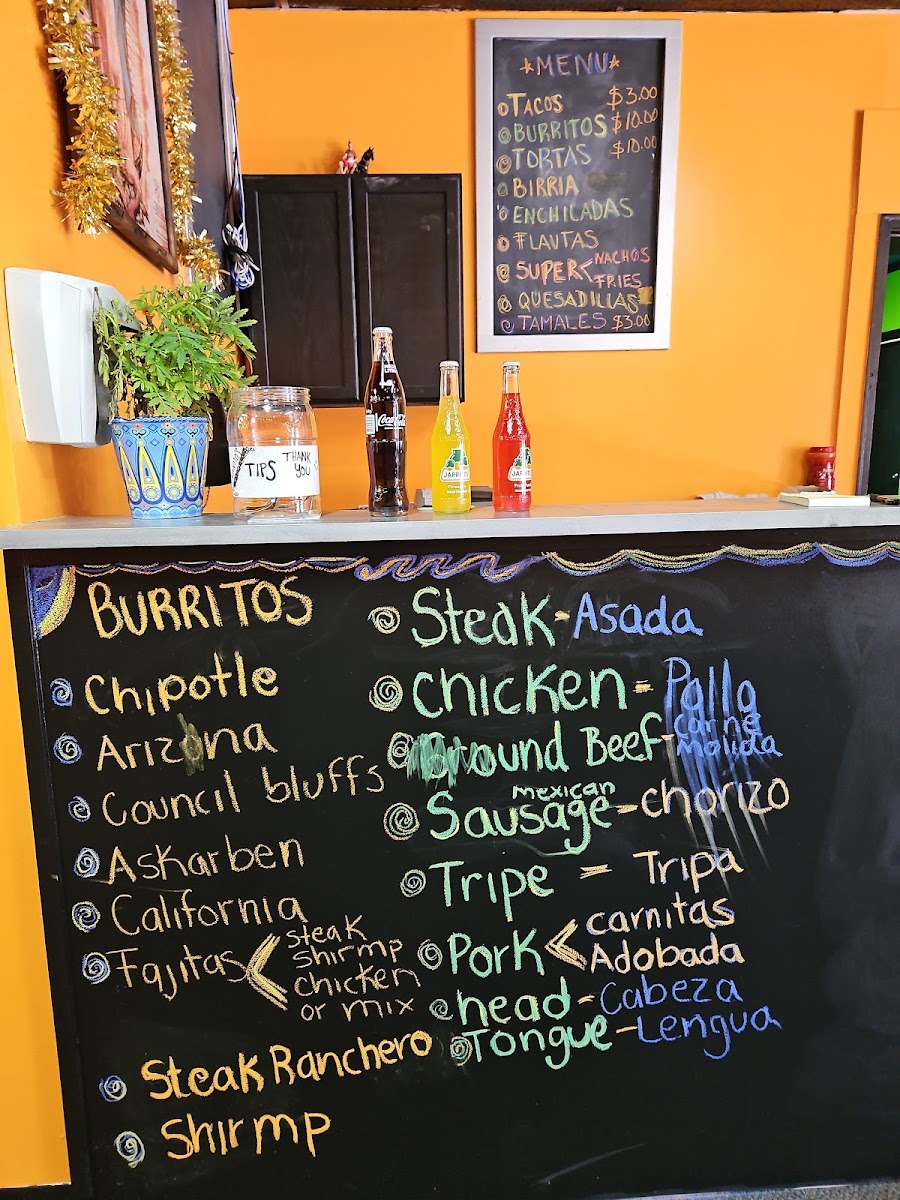 *MENU*
TACOS $3.00
BURRITOS $10.00
TORTAS $10.00
BIRRIA
ENCHILADAS
FLAUTAS
SUPER< NACHOS
FRIES
QUESADILLAS
TAMALES $3.00
TIPS THANK YOU
Coca-Cola
JARRITOS
JARRITOS
BURRITOS
Chipotle
Arizona
Council bluffs
Askarben
California
Fajitas < steak
shirmp
chicken
or mix
Steak Ranchero
Shirmp
Steak - Asada
Chicken = Pollo
Ground Beef - carne
molida
mexican
Sausage - chorizo
Tripe = Tripa
Pork < carnitas
Adobada
head - Cabeza
Tongue - Lengua